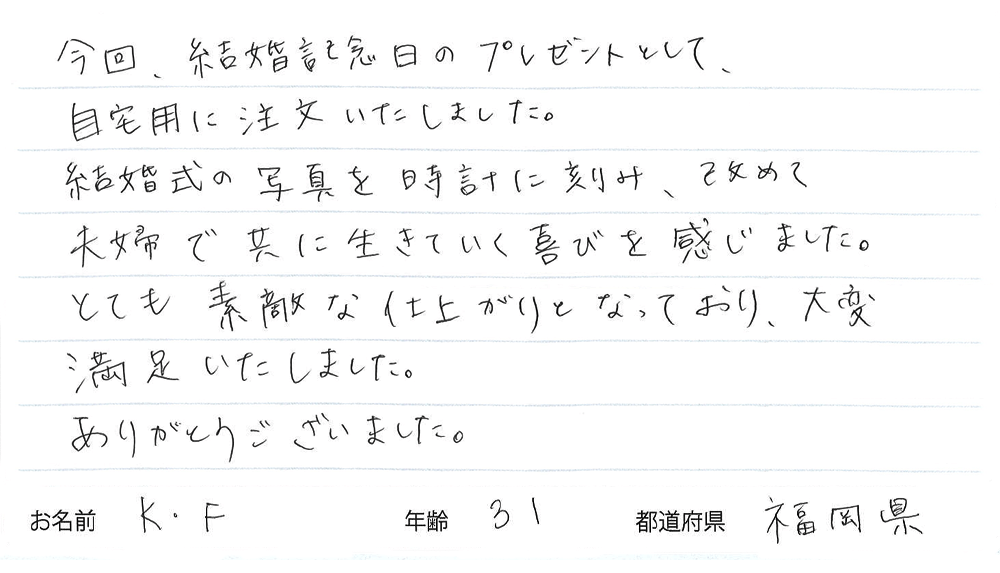 今回、結婚記念日のプレゼントとして、
自宅用に注文いたしました。
結婚式の写真を時計に刻み、改めて
夫婦で共に生きていく喜びを感じました。
とても素敵な仕上がりとなっており、大変
満足いたしました。
ありがとうございました。
お名前 K.F 年齢 31 都道府県 福岡県